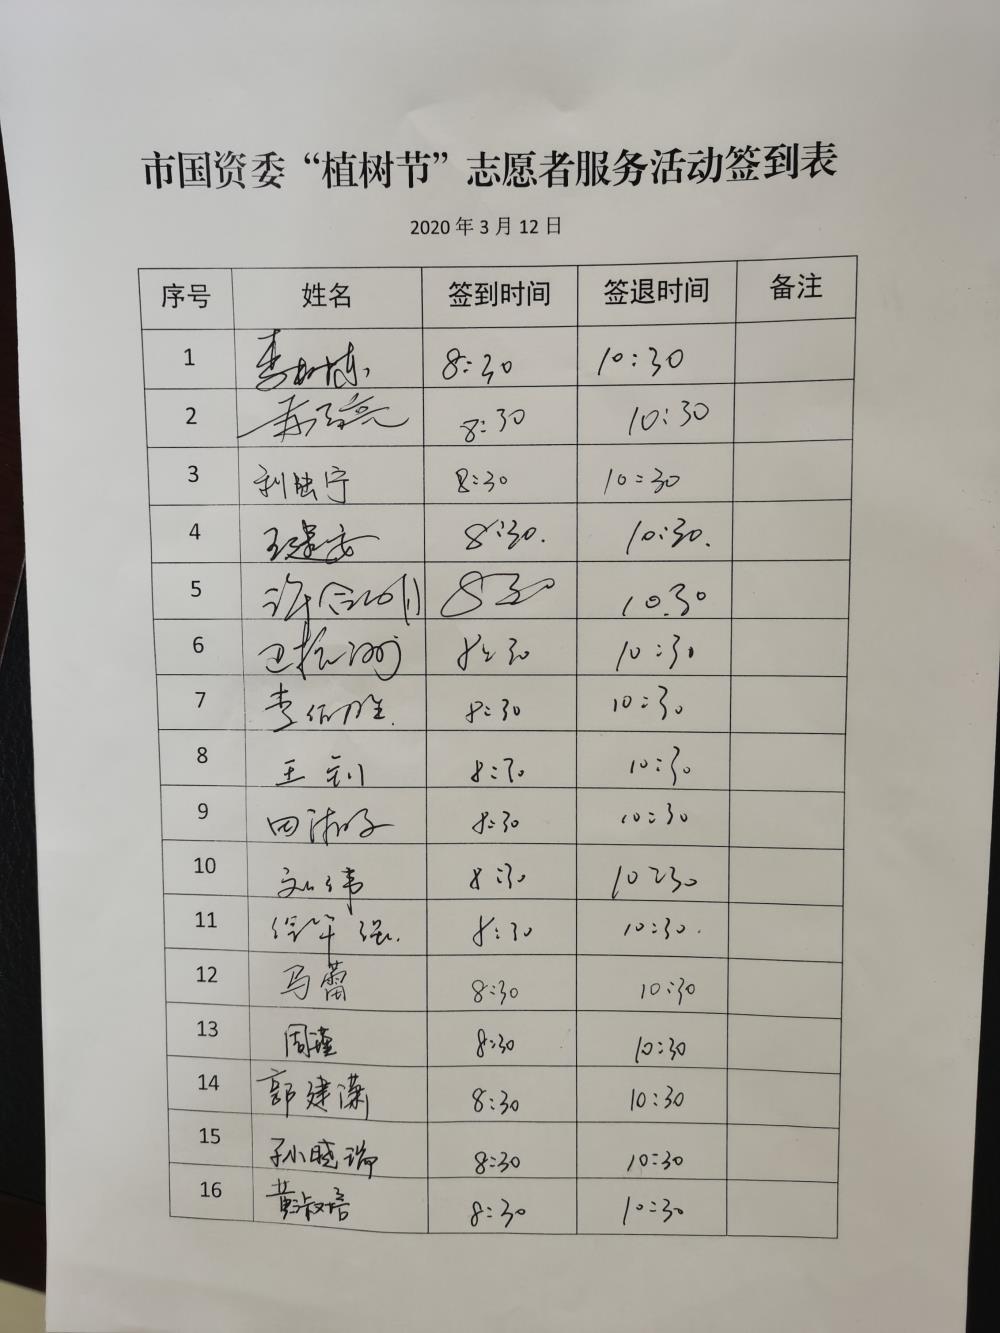 市国资委“植树节”志愿者服务活动签到表
2020 年 3 月 12 日
序号 姓名 签到时间 签退时间 备注
1 李树栋 8:30 10:30
2 8:30 10:30
3 利陆宁 8:30 10:30
4 王建安 8:30. 10:30.
5 许合明 8:30 10:30
6 卫振洲 8:30 10:30
7 李佰胜. 8:30 10:30
8 王钊 8:30 10:30
9 田淑好 8:30 10:30
10 刘伟 8:30 10:30
11 徐军强. 8:30 10:30.
12 马蕾 8:30 10:30
13 周瑾 8:30 10:30
14 郭建潇 8:30 10:30
15 孙晓瑞 8:30 10:30
16 黄淑培 8:30 10:30